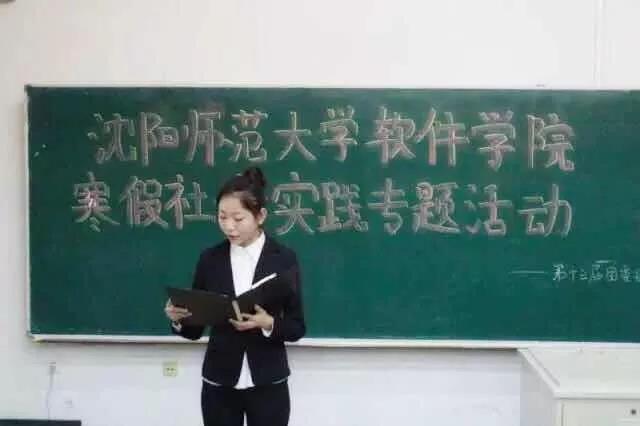 沈阳师范大学软件学院
寒假社实践专题活动
——第十三届团委